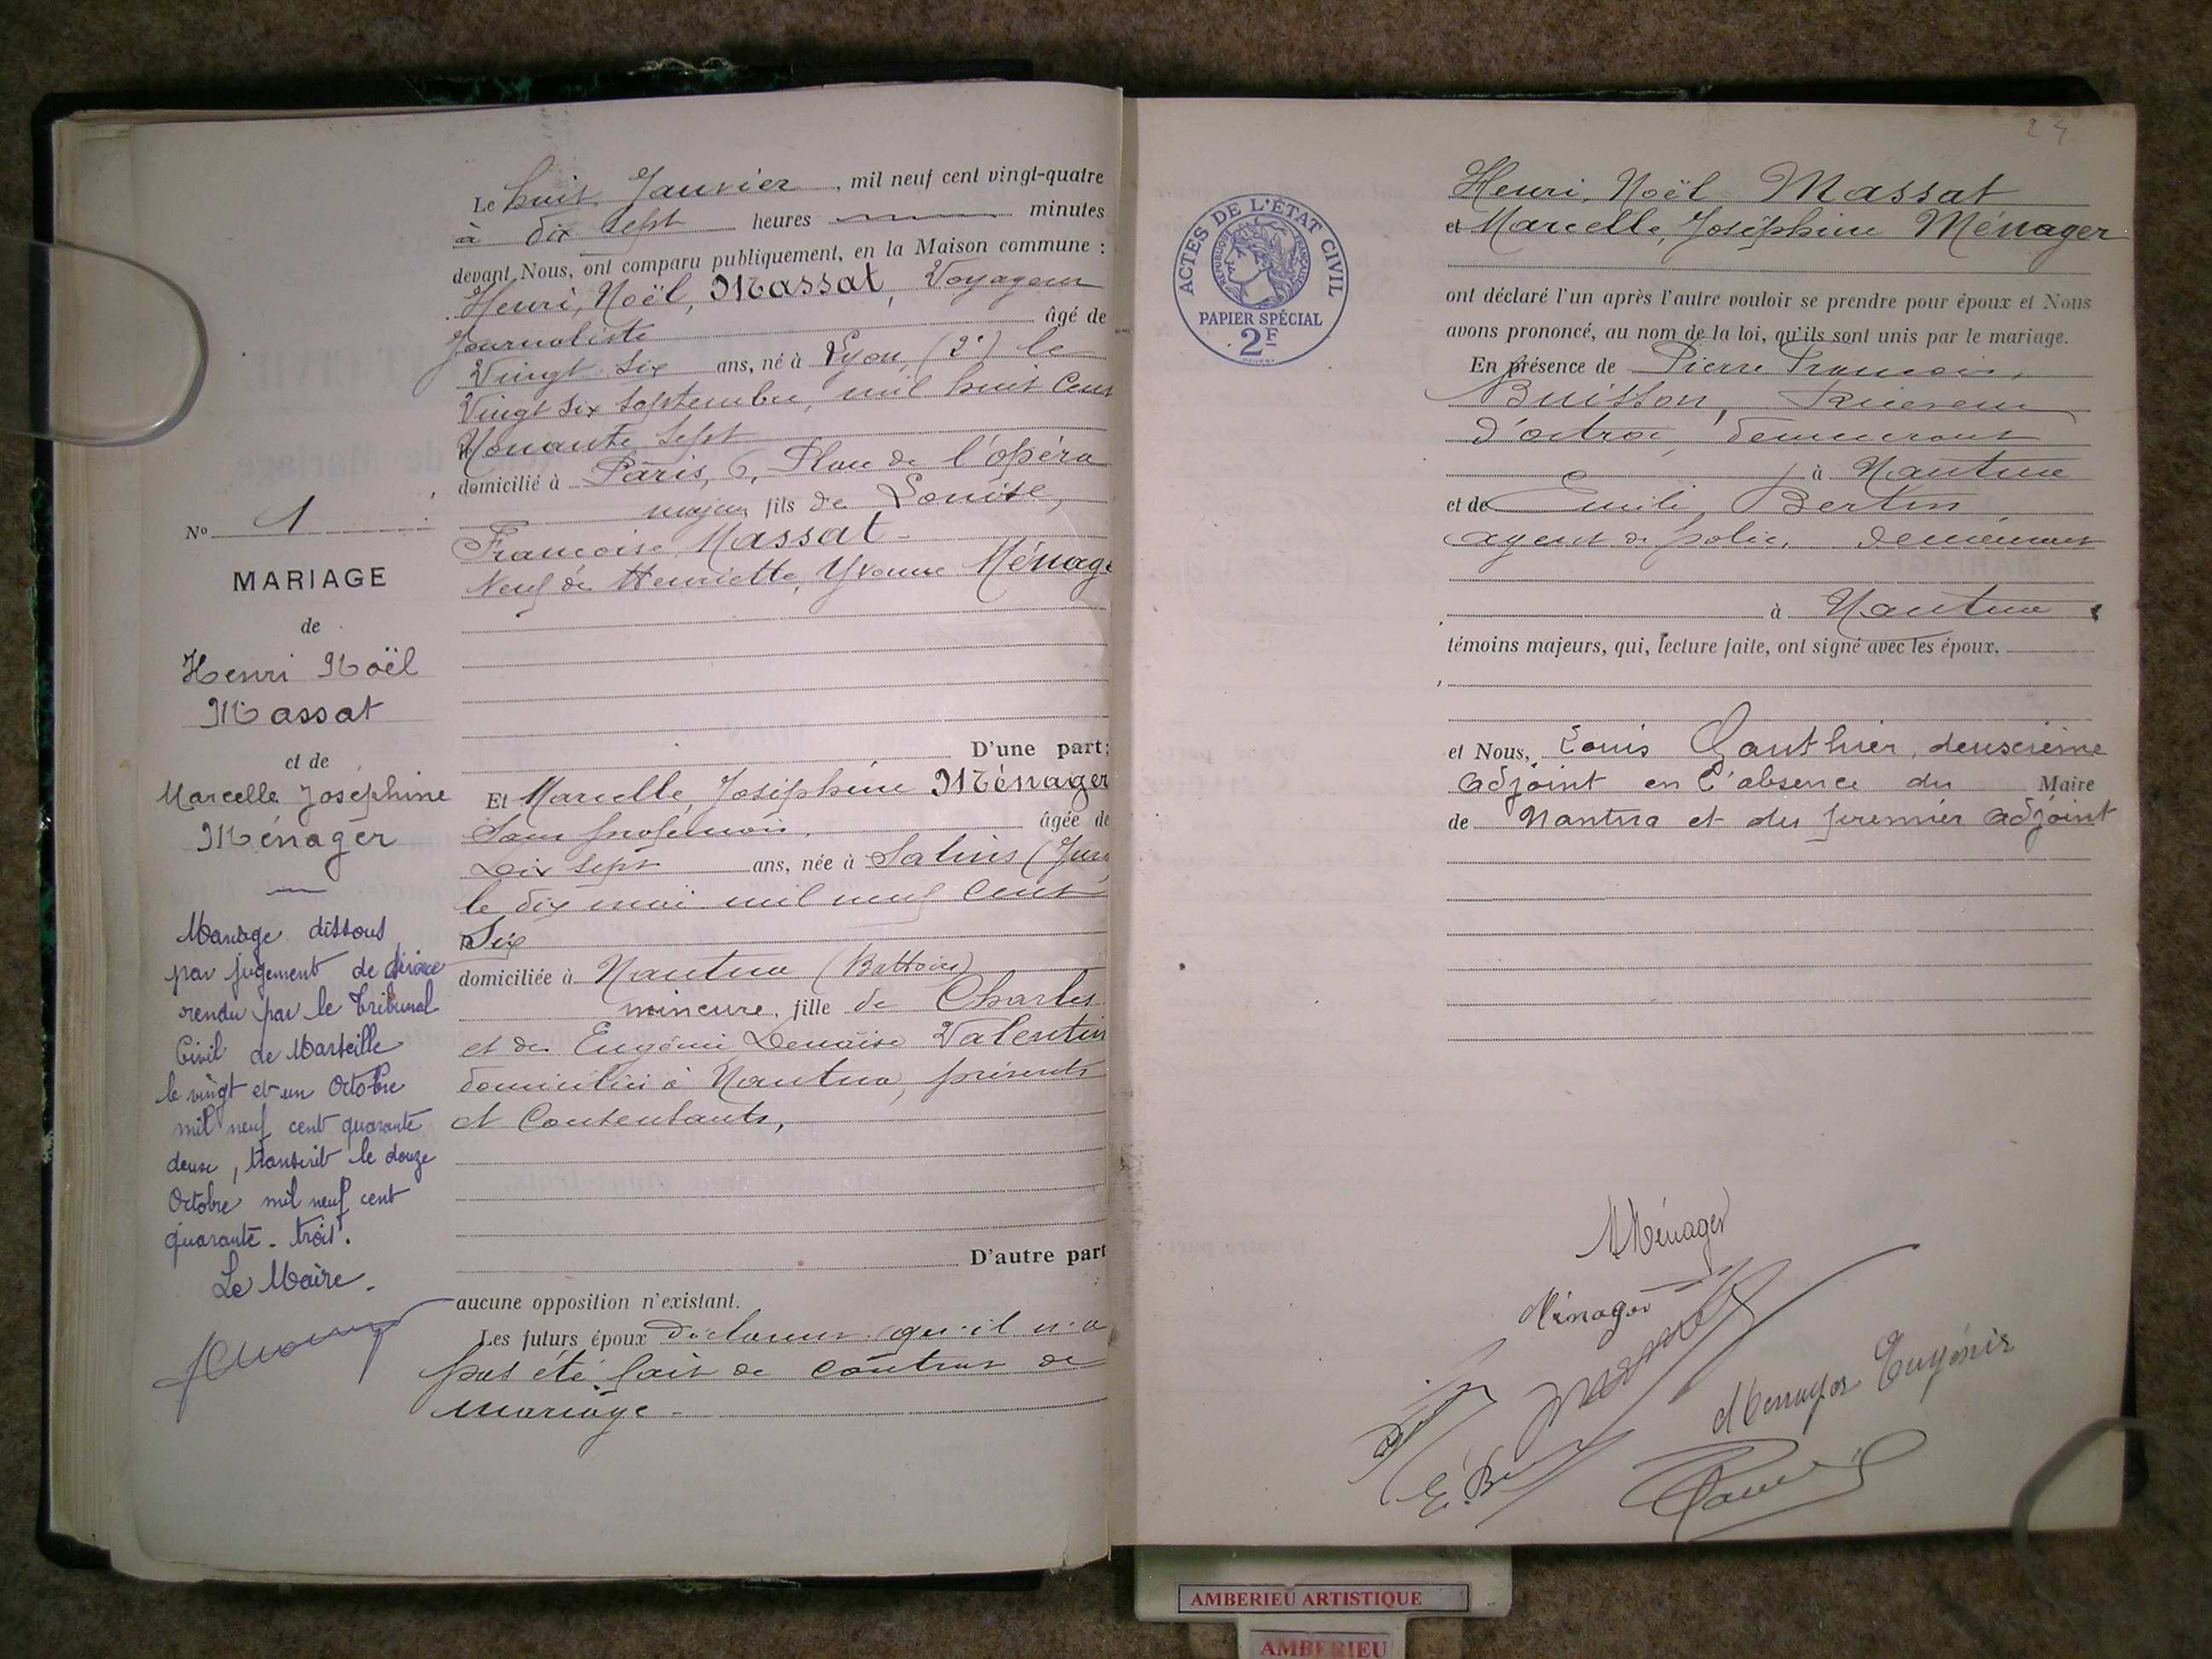 N° 1
MARIAGE
de
Henri Noël
Massat
et de
Marcelle Joséphine
Ménager
Mariage dissous
par jugement de divorce
rendu par le Tribunal
Civil de Marseille
le vingt et un Octobre
mil neuf cent quarante
deux, transcrit le douze
Octobre mil neuf cent
quarante-trois.
Le Maire.
Le huit Janvier, mil neuf cent vingt-quatre
à dix sept heures minutes
devant Nous, ont comparu publiquement, en la Maison commune :
Henri, Noël, Massat, Voyageur
Journaliste âgé de
Vingt six ans, né à Lyon, (2e) le
Vingt six Septembre, mil huit Cent
Nonante Sept
domicilié à Paris, 6, Place de l'opéra
majeur, fils de Louise,
Françoise Massat
Veuf de Henriette, Yvonne Ménage
D'une part;
Et Marcelle, Joséphine Ménager
Sans profession, âgée de
Dix sept ans, née à Salins (Jura
le dix mai mil neuf Cent
Six
domiciliée à Nantua (Battoirs)
mineure, fille de Charles
et de Eugénie Denaise Valentin
domiciliés à Nantua, présents
et Consentants,
D'autre part
aucune opposition n'existant.
Les futurs époux déclarent qu'il n'a
pas été fait de contrat de
mariage.
24
ACTES DE L'ÉTAT CIVIL
RÉPUBLIQUE FRANÇAISE
PAPIER SPÉCIAL
2F
Henri, Noël, Massat
et Marcelle, Joséphine Ménager
ont déclaré l'un après l'autre vouloir se prendre pour époux et Nous
avons prononcé, au nom de la loi, qu'ils sont unis par le mariage.
En présence de Pierre François,
Buisson, Receveur
d'octroi, demeurant
à Nantua
et de Emile, Bertin,
agent de police, demeurant
à Nantua
témoins majeurs, qui, lecture faite, ont signé avec les époux.
et Nous, Louis Gauthier, deuxième
adjoint en l'absence du Maire
de Nantua et du premier adjoint
M Ménager
Ménager
Menager Eugénie
AMBERIEU ARTISTIQUE
AMBERIEU